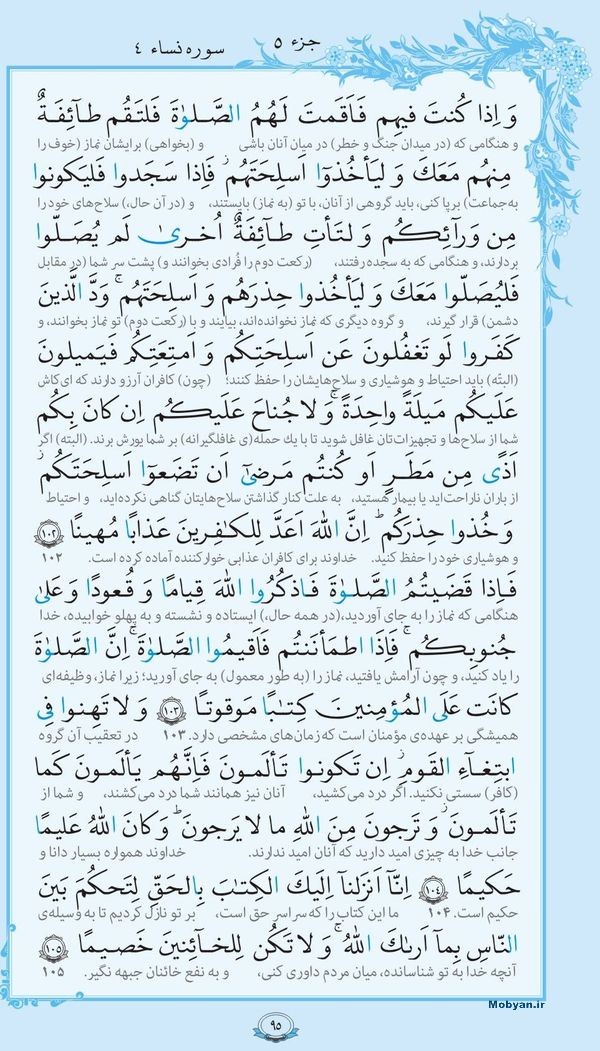 جزء ۵
سوره نساء ۴
وَ اِذا كُنتَ فيهِم فَاَقَمتَ لَهُمُ الصَّلوٰةَ فَلتَقُم طآئِفَةٌ
و هنگامی که (در میدان جنگ و خطر) در میان آنان باشی و (بخواهی) برایشان نماز (خوف را
مِنهُم مَعَكَ وَ ليَأخُذوٓا اَسلِحَتَهُم ۖ فَاِذا سَجَدوا فَليَكونوا
به‌جماعت) برپا کنی، باید گروهی از آنان، با تو (به نماز) بایستند، و (در آن حال،) سلاح‌های خود را
مِن وَرآئِكُم وَ لتَأتِ طآئِفَةٌ اُخرىٰ لَم يُصَلّوا
بردارند، و هنگامی که به سجده رفتند، (رکعت دوم را فُرادی بخوانند و) پشت سر شما (در مقابل
فَليُصَلّوا مَعَكَ وَ ليَأخُذوا حِذرَهُم وَ اَسلِحَتَهُم ۚ وَدَّ الَّذينَ
دشمن) قرار گیرند، و گروه دیگری که نماز نخوانده‌اند، بیایند و با (رکعت دوم) تو نماز بخوانند، و
كَفَروا لَو تَغفُلونَ عَن اَسلِحَتِكُم وَ اَمتِعَتِكُم فَيَميلونَ
(البتّه) باید احتیاط و هوشیاری و سلاح‌هایشان را حفظ کنند؛ (چون) کافران آرزو دارند که ای‌کاش
عَلَيكُم مَيلَةً واحِدَةً ۚ وَ لا جُناحَ عَلَيكُم اِن كانَ بِكُم
شما از سلاح‌ها و تجهیزات‌تان غافل شوید تا با یك حمله‌(ی غافلگیرانه) بر شما یورش برند. (البته) اگر
اَذًى مِن مَطَرٍ اَو كُنتُم مَرضىٰٓ اَن تَضَعوٓا اَسلِحَتَكُم ۖ
از باران ناراحت‌اید یا بیمار هستید، به علت کنار گذاشتن سلاح‌هایتان گناهی نکرده‌اید، و احتیاط
وَ خُذوا حِذرَكُم ۗ اِنَّ اللهَ اَعَدَّ لِلكٰفِرينَ عَذابًا مُهينًا ۱۰۲
و هوشیاری خود را حفظ کنید. خداوند برای کافران عذابی خوارکننده آماده کرده است. ۱۰۲
فَاِذا قَضَيتُمُ الصَّلوٰةَ فَاذكُرُوا اللهَ قِيامًا وَ قُعودًا وَ عَلىٰ
هنگامی که نماز را به جای آوردید،(در همه حال،) ایستاده و نشسته و به پهلو خوابیده، خدا
جُنوبِكُم ۚ فَاِذَا اطمَأنَنتُم فَاَقيمُوا الصَّلوٰةَ ۚ اِنَّ الصَّلوٰةَ
را یاد کنید، و چون آرامش یافتید، نماز را (به طور معمول) به جای آورید؛ زیرا نماز، وظیفه‌ای
كانَت عَلَى المُؤمِنينَ كِتٰبًا مَوقوتًا ۱۰۳ وَ لا تَهِنوا فِى
همیشگی بر عهده‌ی مؤمنان است که زمان‌های مشخصی دارد. ۱۰۳ در تعقیب آن گروه
ابتِغآءِ القَومِ ۖ اِن تَكونوا تَألَمونَ فَاِنَّهُم يَألَمونَ كَما
(کافر) سستی نکنید. اگر درد می‌کشید، آنان نیز همانند شما درد می‌کشند، و شما از
تَألَمونَ ۖ وَ تَرجونَ مِنَ اللهِ ما لا يَرجونَ ۗ وَ كانَ اللهُ عَليمًا
جانب خدا به چیزی امید دارید که آنان امید ندارند. خداوند همواره بسیار دانا و
حَكيمًا ۱۰۴ اِنّآ اَنزَلنآ اِلَيكَ الكِتٰبَ بِالحَقِّ لِتَحكُمَ بَينَ
حکیم است. ۱۰۴ ما این کتاب را که سراسر حق است، بر تو نازل کردیم تا به وسیله‌ی
النّاسِ بِمآ اَرىٰكَ اللهُ ۚ وَ لا تَكُن لِلخآئِنينَ خَصيمًا ۱۰۵
آنچه خدا به تو شناسانده، میان مردم داوری کنی، و به نفع خائنان جبهه نگیر. ۱۰۵
۹۵
Mobyan.ir